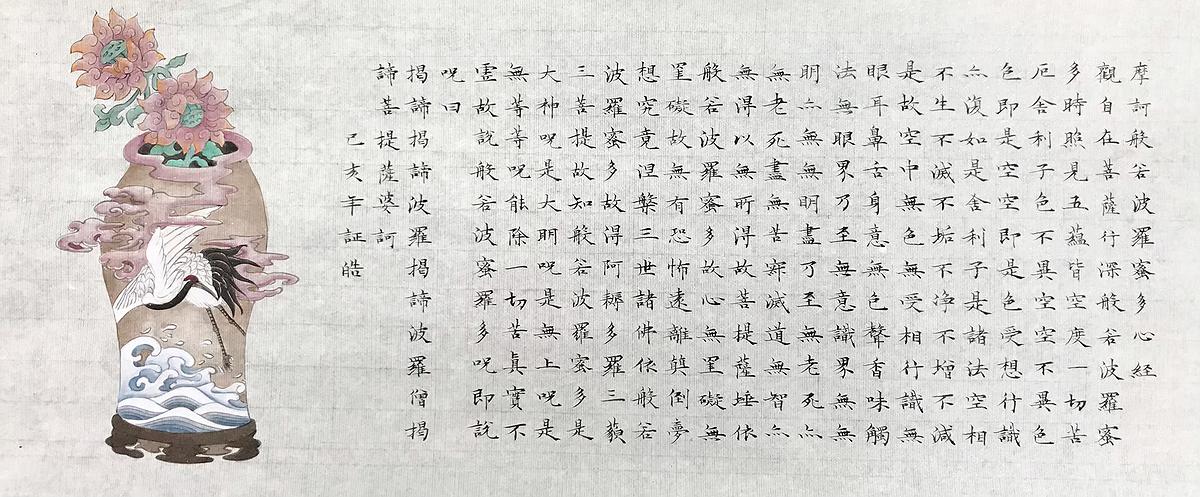 摩訶般若波羅蜜多心経
觀自在菩薩行深般若波羅蜜
多時照見五蘊皆空度一切苦
厄舍利子色不異空空不異色
色即是空空即是色受想行識
亦復如是舍利子是諸法空相
不生不滅不垢不净不增不減
是故空中無色無受相行識無
眼耳鼻舌身意無色聲香味觸
法無眼界乃至無意識界無無
明亦無無明盡乃至無老死亦
無老死盡無苦寂滅道無智亦
無得以無所得故菩提薩埵依
般若波羅蜜多故心無罣礙無
罣礙故無有恐怖遠離顛倒夢
想究竟涅槃三世諸佛依般若
波羅蜜多故得阿耨多羅三藐
三菩提故知般若波羅蜜多是
大神呪是大明呪是無上呪是
無等等呪能除一切苦真實不
虛故説般若波蜜羅多呪即説
呪曰
揭諦揭諦波羅揭諦波羅僧揭
諦菩提薩婆訶
己亥年証皓